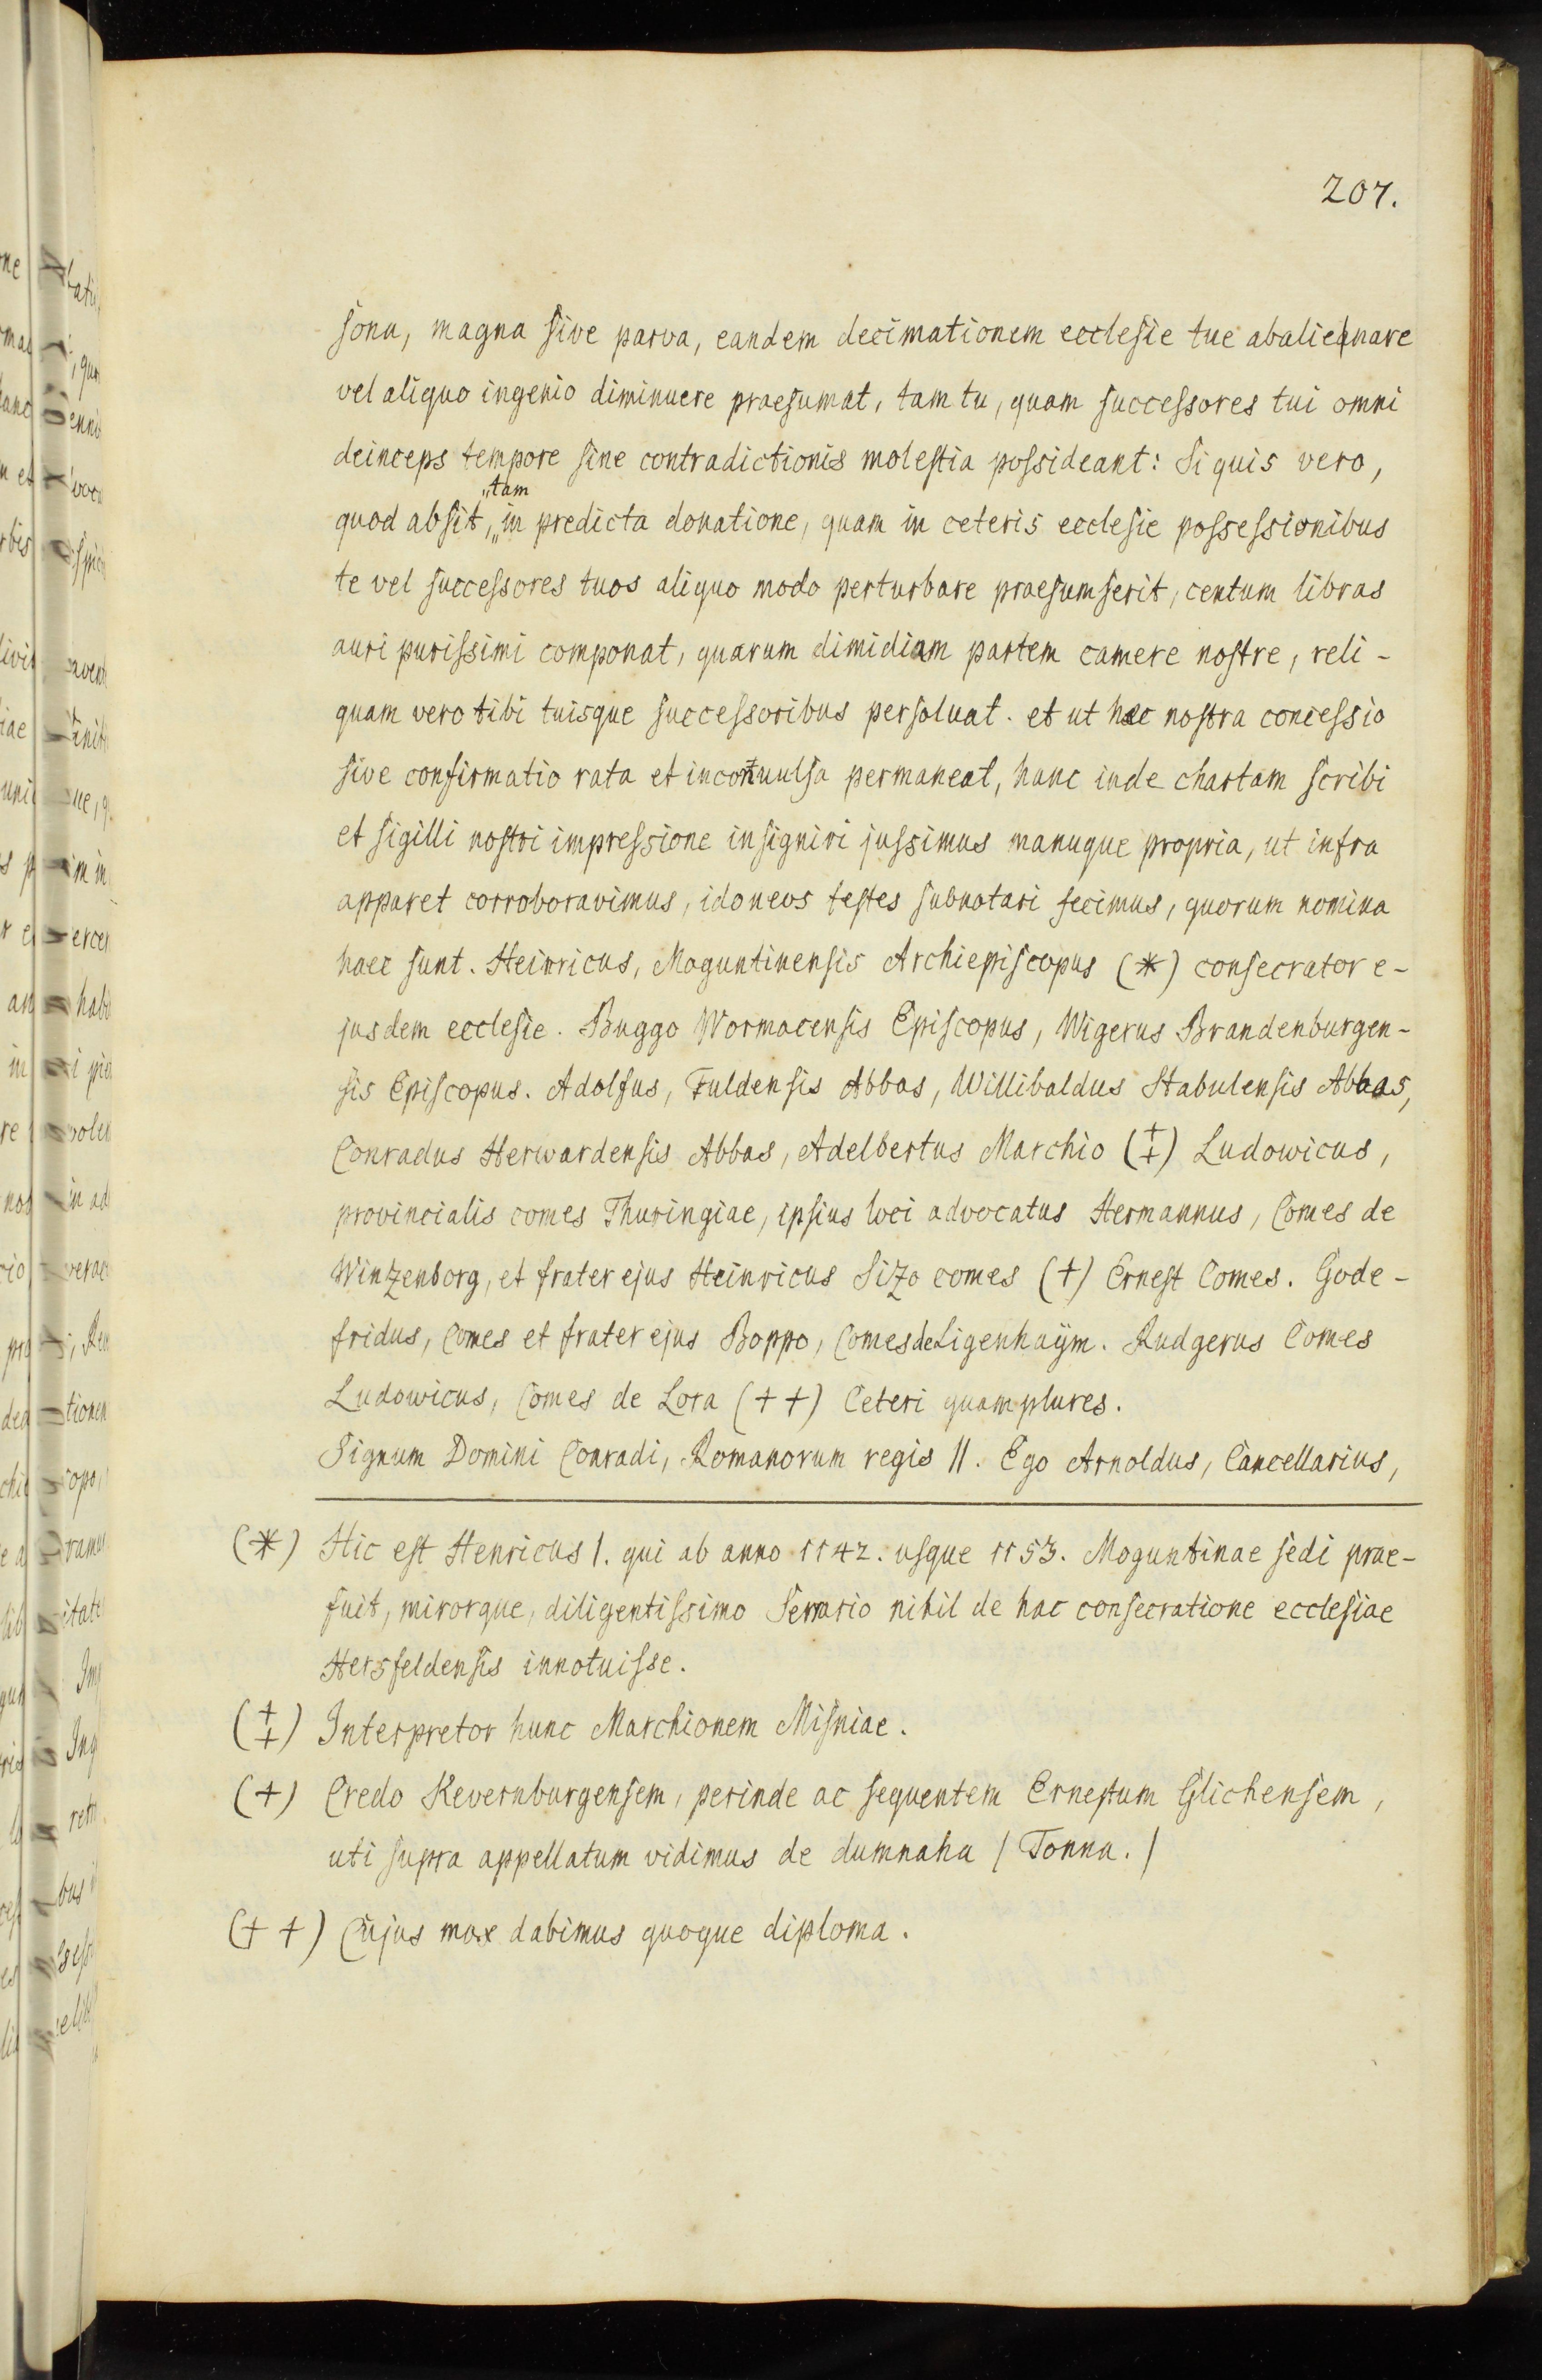 207.
sona, magna sive parva, eandem decimationem ecclesie tue abalienare
vel aliquo ingenio diminuere praesumat, tam tu, quam successores tui omni
deinceps tempore sine contradictionis molestia possideant: Si quis vero,
quod absit, „tam „in predicta donatione, quam in ceteris ecclesie possessionibus
te vel successores tuos aliquo modo perturbare praesumserit, centum libras
auri purissimi componat, quarum dimidiam partem camere nostre, reli-
quam vero tibi tuisque successoribus persoluat. et ut hec nostra concessio
sive confirmatio rata et inconuulsa permaneat, hanc inde chartam scribi
et sigilli nostri impressione insigniri jussimus manuque propria, ut infra
apparet corroboravimus, idoneos testes subnotari fecimus, quorum nomina
haec sunt. Heinricus, Moguntinensis Archiepiscopus (*) consecrator e-
jusdem ecclesie. Buggo Wormacensis Episcopus, Wigerus Brandenburgen-
sis Episcopus. Adolfus, Fuldensis Abbas, Willibaldus Stabulensis Abbas,
Conradus Herwardensis Abbas, Adelbertus Marchio (‡) Ludowicus,
provincialis comes Thuringiae, ipsius loci advocatus Hermannus, Comes de
Wintzenborg, et frater ejus Heinricus Sizo comes (+) Ernest Comes. Gode-
fridus, Comes et frater ejus Boppo, Comes de Ligenhaÿm. Rudgerus Comes
Ludowicus, Comes de Lora (++) Ceteri quamplures.
Signum Domini Conradi, Romanorum regis II. Ego Arnoldus, Cancellarius,
(*) Hic est Henricus I. qui ab anno 1142. usque 1153. Moguntinae sedi prae-
fuit, mirorque, diligentissimo Serrario nihil de hac consecratione ecclesiae
Hersfeldensis innotuisse.
(‡) Interpretor hunc Marchionem Misniae.
(+) Credo Kevernburgensem, perinde ac sequentem Ernestum Glichensem,
uti supra appellatum vidimus de dumnaha / Tonna. /
(++) Cujus mox dabimus quoque diploma.